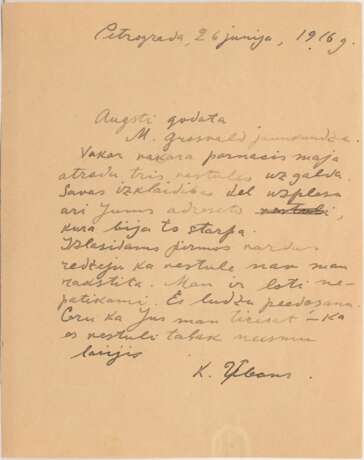 Petrograda, 26 junija, 1916 g.
Augsti godata
M. Grosvald jaunkundze.
Vakar vakara parnacis maja
atradu tris vestules uz galda.
Savas izklaidibas del uzplesa
ari Jums adreseto vestuli,
kura bija to starpa.
Izlasidams pirmos vardus
redzeju ka vestule nav man
rakstita. Man ir loti ne-
patikami. Es ludzu peedosana.
Ceru ka Jus man ticesat – ka
es vestuli talak neesmu
lasijis
K. Ubans.